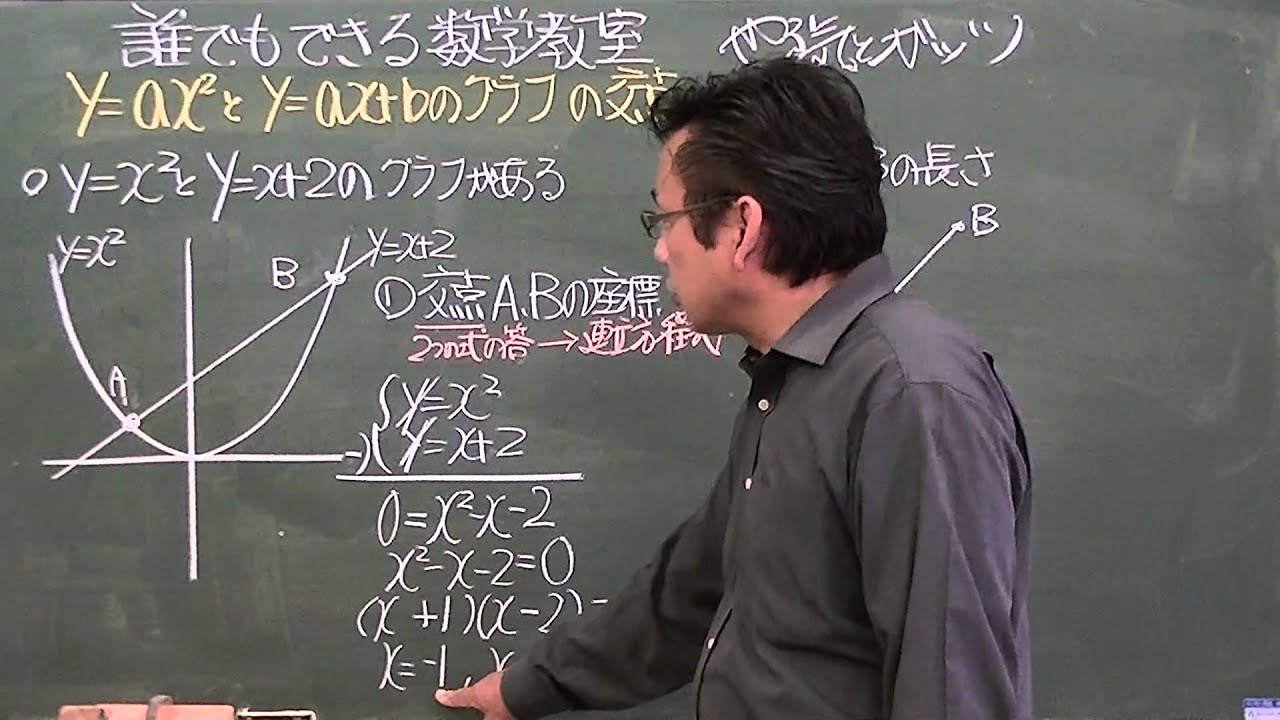 誰でもできる数学教室 やる気とガッツ
y=ax²とy=ax+bのグラフの交点
○y=x²とy=x+2のグラフがある
の長さ
y=x²
y=x+2
B
A
B
①交点A,Bの座標
2つの式の答→連立方程式
{y=x²
-){y=x+2
0=x²-x-2
x²-x-2=0
(x+1)(x-2)
x=-1, x